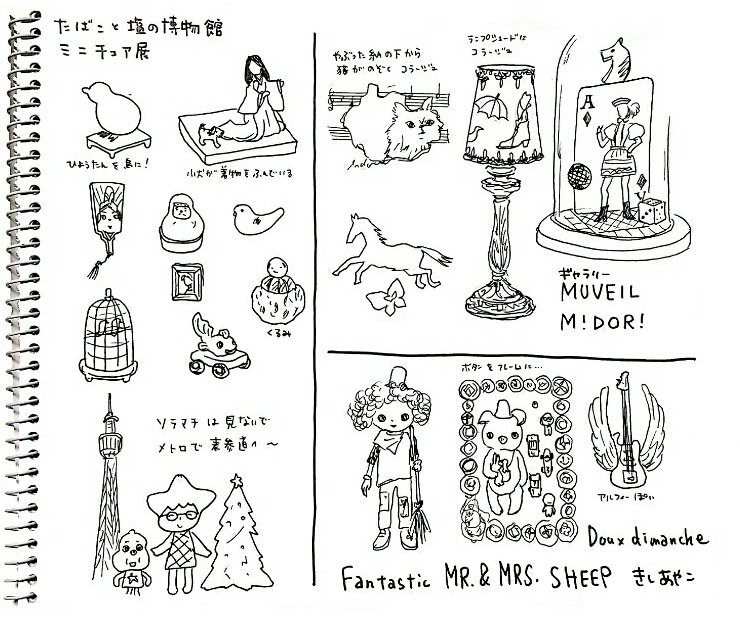 たばこと塩の博物館
ミニチュア展
ひょうたんを鳥に!
小犬が着物をふんでいる
くるみ
ソラマチは見ないで
メトロで表参道へ〜
やぶった紙の下から
猫がのぞくコラージュ
ランプシェードに
コラージュ
A
ギャラリー
MUVEIL
M!DOR!
ボタンをフレームに…
アルフィーぽい
Doux dimanche
Fantastic MR.& MRS. SHEEP きしあやこ